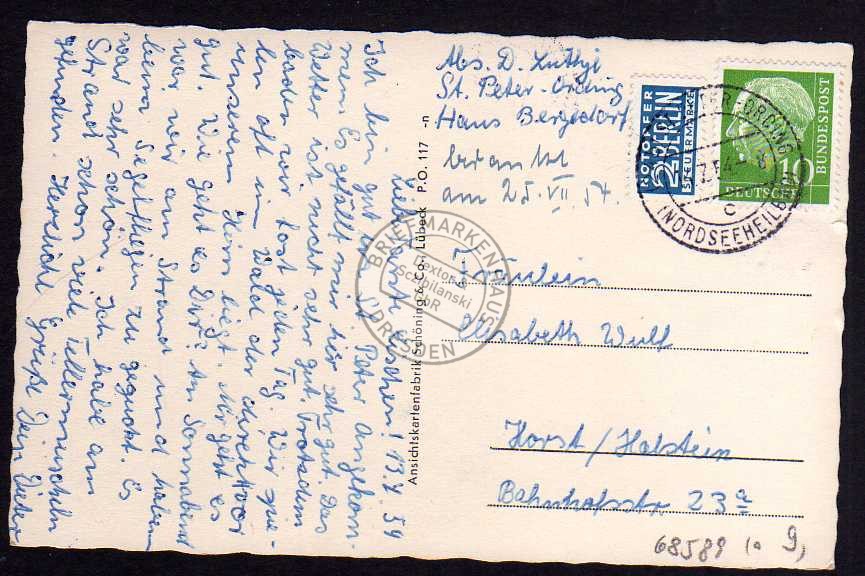 Liebe Tante Lieschen! 13.7.54
Ich bin gut in St. Peter angekom-
men. Es gefällt mir hir sehr gut. Das
Wetter ist nicht sehr gut. Trotzdem
baden wir fast jeden Tag. Wir spie-
len oft im Wald der direkt vor
unserem Heim liegt. Mir geht es
gut. Wie geht es Dir? Am Sonnabend
war wir am Strand und haben
beim Segelfliegen zu geguckt. Es
war sehr schön. Ich habe am
Strand schon viele Tellermuscheln
gefunden. Herzliche Grüße Dein Dieter
Ansichtskartenfabrik Schöning & Co., Lübeck P.O. 117 -n
Abs. D. Lüthje
St. Peter-Ording
Haus Bergedorf
am 25. VII 54.
NOTOPFER
2 BERLIN
STEUERMARKE
10
DEUTSCHE
BUNDESPOST
ORDING
c
(NORDSEEHEILB
BRIEFMARKENHAUS
Dextor &
Scibilanski
GbR
DRESDEN
Fräulein
Elisabeth Wulf
Horst/Holstein
Bahnhofsstr. 23a
68589